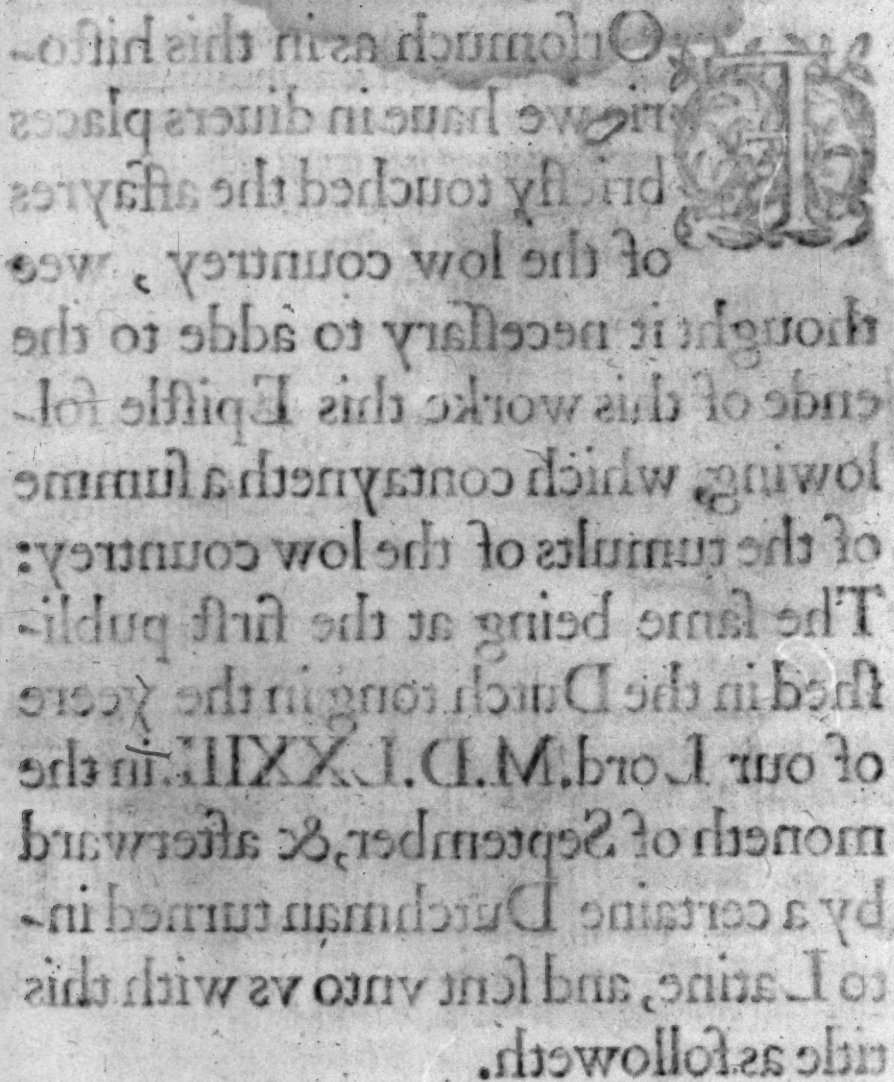 FOrsomuch as in this histo-
rie we haue in diuers places
briefly touched the affayres
of the low countrey, wee
thought it necessary to adde to the
ende of this worke this Epistle fol-
lowing, which contayneth a summe
of the tumults of the low countrey:
The same being at the first publi-
shed in the Dutch tong in the yeere
of our Lord. M. D. LXXIII. in the
moneth of September, & afterward
by a certaine Dutchman turned in-
to Latine, and sent vnto vs with this
title as followeth.